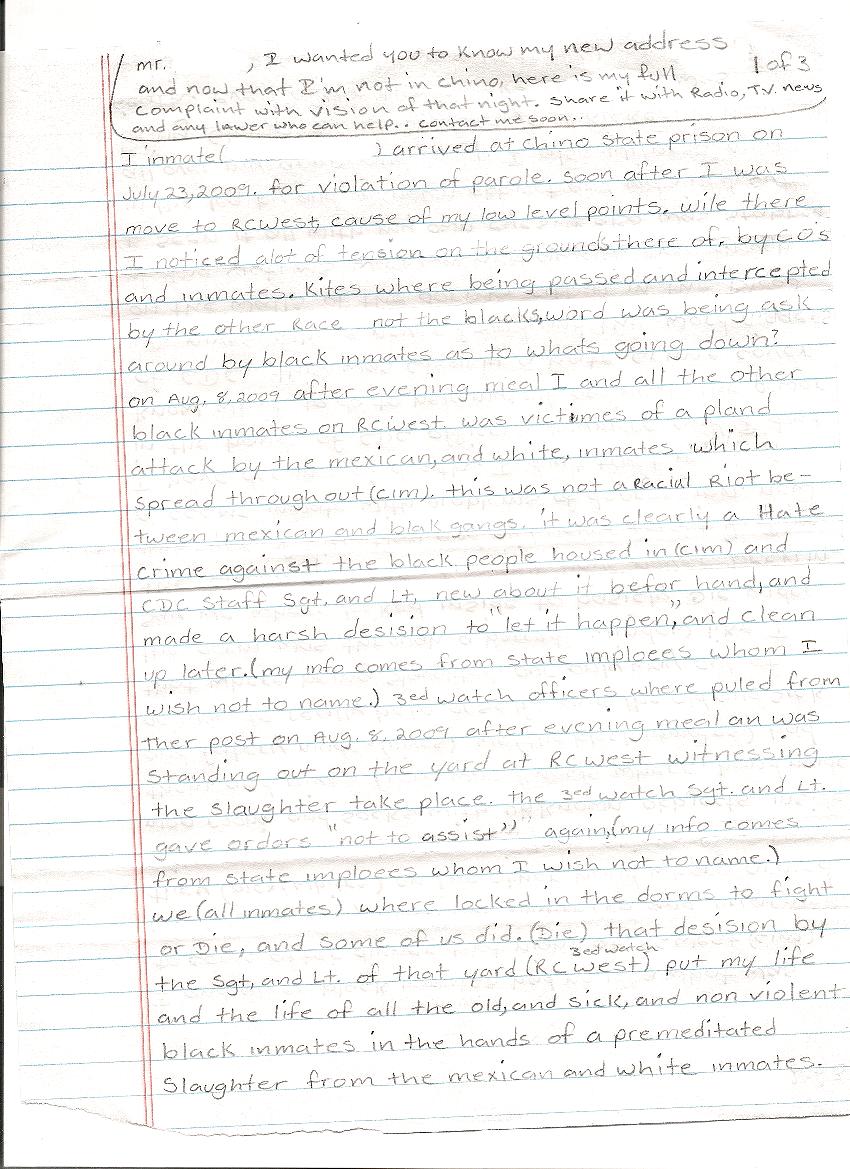 mr. , I wanted you to know my new address
1 of 3
and now that I'm not in chino, here is my full
complaint with vision of that night. share it with Radio, T.V. news
and any lawer who can help.. contact me soon..
I inmate( ) arrived at chino state prison on
July 23, 2009. for violation of parole. soon after I was
move to RCWest, cause of my low level points. wile there
I noticed alot of tension on the grounds there of, by C.O's
and inmates. Kites where being passed and intercepted
by the other Race not the blacks, word was being ask
around by black inmates as to whats going down?
on Aug. 8, 2009 after evening meal I and all the other
black inmates on RCWest was victimes of a pland
attack by the mexican, and white, inmates which
spread throughout (CIM). this was not a Racial Riot be-
tween mexican and blak gangs. it was clearly a Hate
crime against the black people housed in (CIM) and
CDC Staff Sgt. and Lt, new about it befor hand, and
made a harsh desision to "let it happen", and clean
up later. (my info comes from state imploees whom I
wish not to name.) 3ed watch officers where puled from
ther post on Aug. 8, 2009 after evening meal an was
standing out on the yard at RCWest witnessing
the slaughter take place. the 3ed watch Sgt. and Lt.
gave orders "not to assist" again, (my info comes
from state imploees whom I wish not to name.)
we (all inmates) where locked in the dorms to fight
or Die, and some of us did. (Die) that desision by
3ed watch
the Sgt, and Lt. of that yard (RCWest) put my life
and the life of all the old, and sick, and non violent
black inmates in the hands of a premeditated
slaughter from the mexican and white inmates.